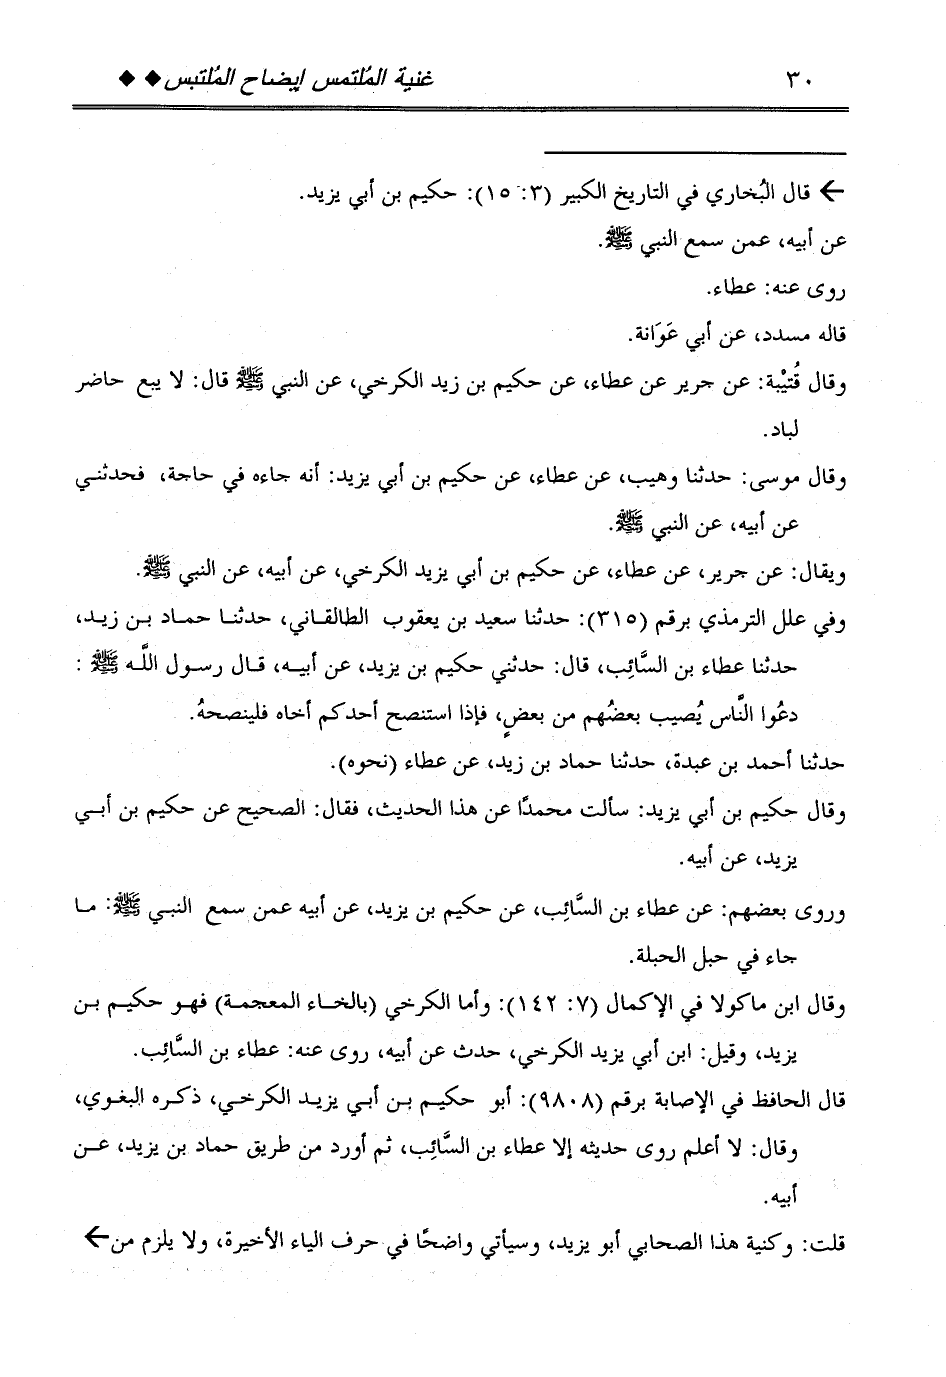 ٣٠ غنية المُلتمس إيضاح المُلتبس ◆ ◆
← قال البُخاري في التاريخ الكبير (٣: ١٥): حكيم بن أبي يزيد.
عن أبيه، عمن سمع النبي ﷺ.
روى عنه: عطاء.
قاله مسدد، عن أبي عَوَانة.
وقال قُتيْبة: عن جرير عن عطاء، عن حكيم بن زيد الكرخي، عن النبي ﷺ قال: لا يبع حاضر
لباد.
وقال موسى: حدثنا وهيب، عن عطاء، عن حكيم بن أبي يزيد: أنه جاءه في حاجة، فحدثني
عن أبيه، عن النبي ﷺ.
ويقال: عن جرير، عن عطاء، عن حكيم بن أبي يزيد الكرخي، عن أبيه، عن النبي ﷺ.
وفي علل الترمذي برقم (٣١٥): حدثنا سعيد بن يعقوب الطالقاني، حدثنا حماد بن زيد،
حدثنا عطاء بن السَّائِب، قال: حدثني حكيم بن يزيد، عن أبيه، قال رسول اللَّه ﷺ :
دعُوا النَّاس يُصيب بعضُهم من بعضٍ، فإذا استنصح أحدكم أخاه فلينصحهُ.
حدثنا أحمد بن عبدة، حدثنا حماد بن زيد، عن عطاء (نحوه).
وقال حكيم بن أبي يزيد: سألت محمدًا عن هذا الحديث، فقال: الصحيح عن حكيم بن أبي
يزيد، عن أبيه.
وروى بعضهم: عن عطاء بن السَّائِب، عن حكيم بن يزيد، عن أبيه عمن سمع النبي ﷺ: ما
جاء في حبل الحبلة.
وقال ابن ماكولا في الإكمال (٧: ١٤٢): وأما الكرخي (بالخاء المعجمة) فهو حكيم بن
يزيد، وقيل: ابن أبي يزيد الكرخي، حدث عن أبيه، روى عنه: عطاء بن السَّائِب.
قال الحافظ في الإصابة برقم (٩٨٠٨): أبو حكيم بن أبي يزيد الكرخي، ذكره البغوي،
وقال: لا أعلم روى حديثه إلا عطاء بن السَّائِب، ثم أورد من طريق حماد بن يزيد، عن
أبيه.
قلت: وكنية هذا الصحابي أبو يزيد، وسيأتي واضحًا في حرف الياء الأخيرة، ولا يلزم من←